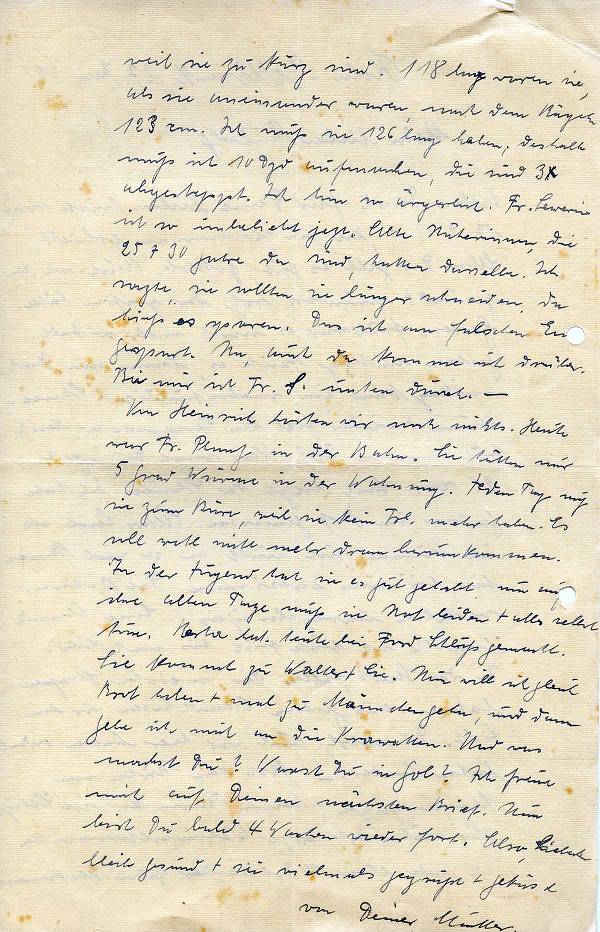 weil sie zu kurz sind. 118 lang waren sie,
als sie aneinander waren, nach dem Bügeln
123 cm. Ich muß sie 126 lang haben, deshalb
muß ich 10 Dzd auftrennen, die sind 3x
abgesteppt. Ich bin so ärgerlich. Fr. Severin
ist so unbeliebt jetzt. Alte Näherinnen, die
25 + 30 Jahre da sind, hatten dasselbe. Ich
sagte, sie sollten sie länger schneiden, da
hieß es sparen. Das ist am falschen En
gespart. Na, auch da komme ich drüber.
Bei mir ist Fr. S. unten durch. —
Von Heinrich hörten wir noch nichts. Heute
war Fr. in der Bahn. Sie hätten nur
5 Grad Wärme in der Wohnung. Jeden Tag muß
sie zum Büro, weil sie kein Frl. mehr haben. Es
soll wohl nicht mehr drum herumkommen.
In der Jugend hat sie es gut gehabt, nun auf
ihre alten Tage muß sie Not leiden + alles selbst
tun. Herta hat heute bei Ford Schluß gemacht.
Sie kommt zu Walter + Sie. Nun will ich gleich
Brot holen + mal zu gehn, und dann
gehe ich mit an die Krawatten. Und was
machst Du? Warst Du in Gol? Ich freue
mich auf Deinen nächsten Brief. Nun
bist Du bald 4 Wochen wieder fort. Also,
bleib gesund + sei vielmals gegrüßt + geküßt
von Deiner Mutter.